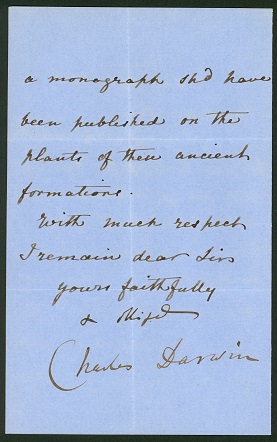 a monograph shd have
been published on the
plants of these ancient
formations.
With much respect
I remain dear Sir
yours faithfully
& obliged
Charles Darwin